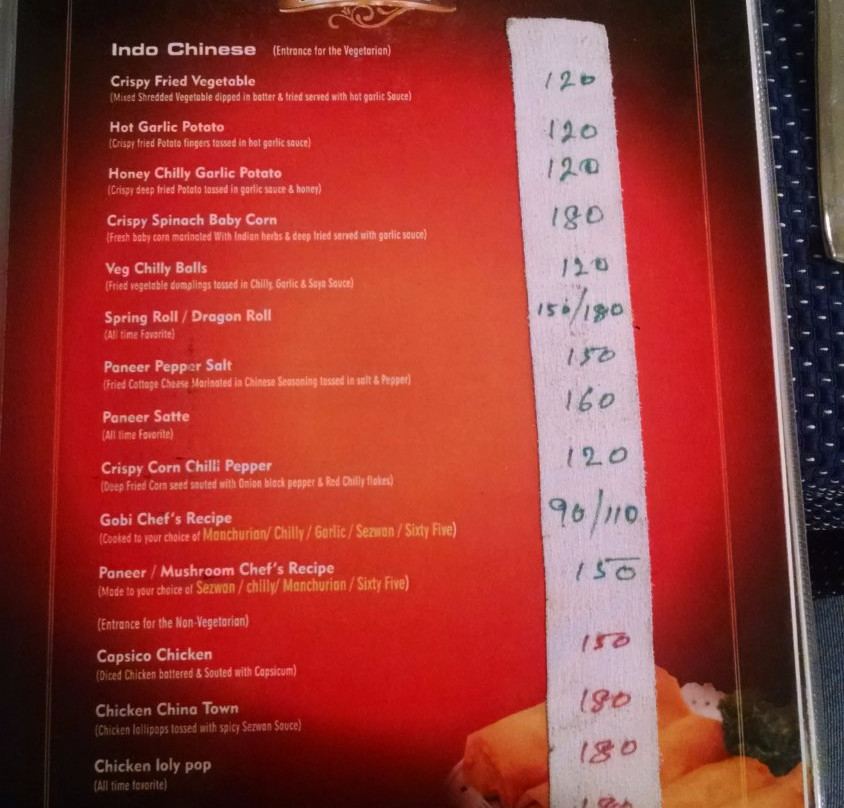 Indo Chinese (Entrance for the Vegetarian)
Crispy Fried Vegetable 120
(Mixed Shredded Vegetable dipped in batter & fried served with hot garlic Sauce)
Hot Garlic Potato 120
(Crispy fried Potato fingers tossed in hot garlic sauce)
Honey Chilly Garlic Potato 120
(Crispy deep fried Potato tossed in garlic sauce & honey)
Crispy Spinach Baby Corn 180
(Fresh baby corn marinated With Indian herbs & deep fried served with garlic sauce)
Veg Chilly Balls 120
(Fried vegetable dumplings tossed in Chilly, Garlic & Soya Sauce)
Spring Roll / Dragon Roll 150/180
(All time Favorite)
Paneer Pepper Salt 150
(Fried Cottage Cheese Marinated in Chinese Seasoning tossed in salt & Pepper)
Paneer Satte 160
(All time Favorite)
Crispy Corn Chilli Pepper 120
(Deep Fried Corn seed sauted with Onion black pepper & Red Chilly flakes)
Gobi Chef's Recipe 90/110
(Cooked to your choice of Manchurian/ Chilly / Garlic / Sezwan / Sixty Five)
Paneer / Mushroom Chef's Recipe 150
(Made to your choice of Sezwan / chilly/ Manchurian / Sixty Five)
(Entrance for the Non-Vegetarian)
Capsico Chicken 150
(Diced Chicken battered & Souted with Capsicum)
Chicken China Town 180
(Chicken lollipops tossed with spicy Sezwan Sauce)
Chicken loly pop 180
(All time favorite)